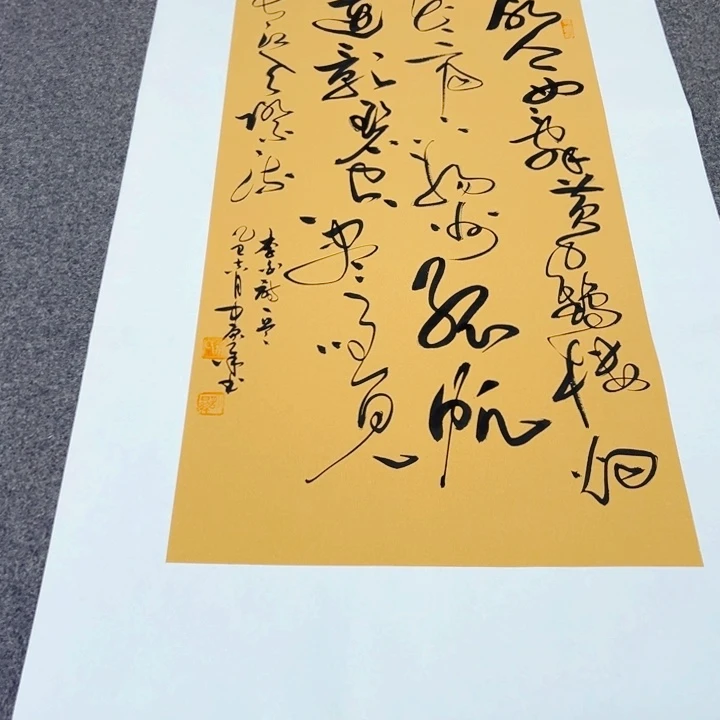 故人西辞黄鹤楼烟
花三月下扬州孤帆
远影碧空尽唯见
长江天际流
李白诗一首